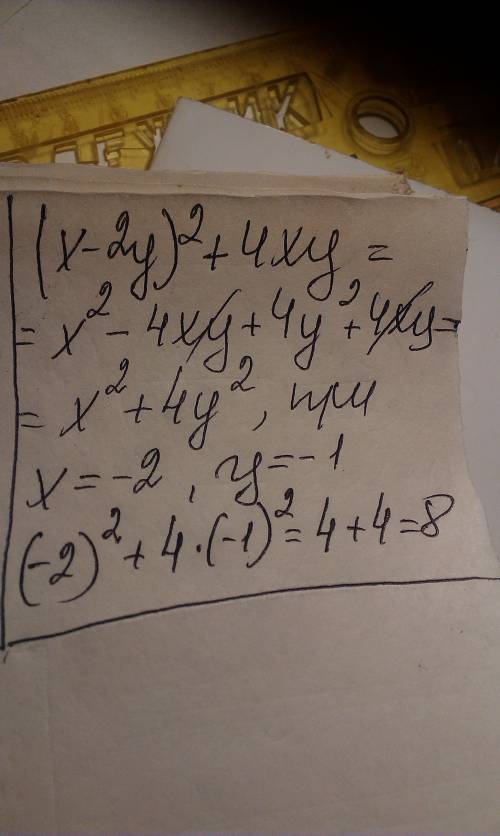 (x-2y)²+4xy=
=x²-4xy+4y²+4xy=
=x²+4y², при
x=-2, y=-1
(-2)²+4·(-1)²=4+4=8